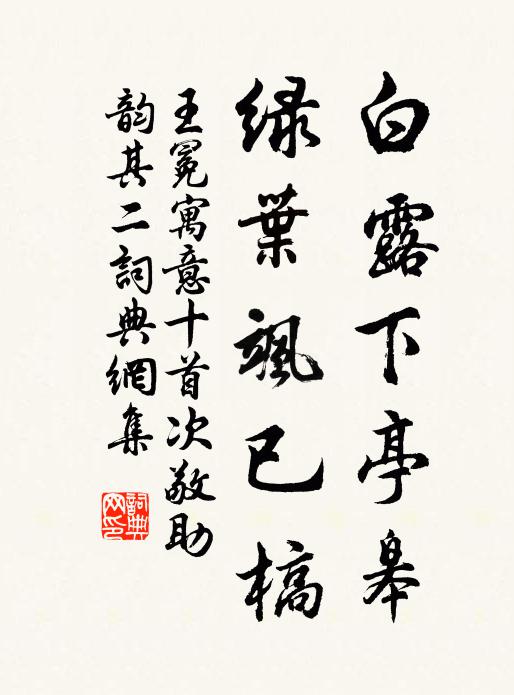 白露下亭皋
綠葉颯已槁
王冕寓意十首次敬助
韵其二詞典網集
詞典网印